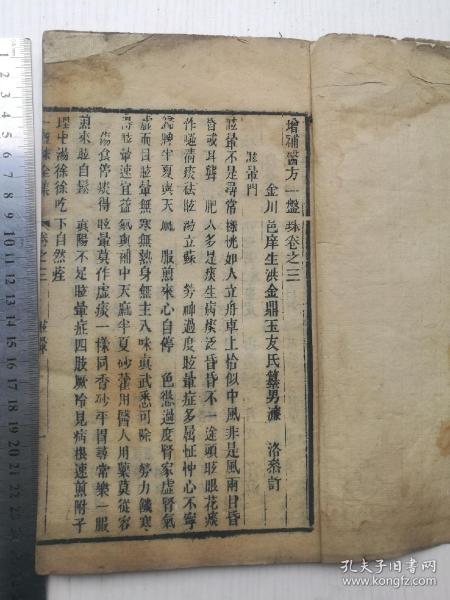 增補醫方一盤珠卷之三
金川邑庠生洪金鼎玉友氏纂男濂 洛叅訂
眩暈門
眩暈不是尋常擬恍如人立舟車上恰似中風非是風兩目昏
昏或耳聾 肥人多是痰生病痰泛昏昏不一途頭眩眼花痰
作 清痰祛眩 立蘇 勞神過度眩暈症多屬怔忡心不寧
歸脾半夏與天麻 服煎來心自停 色慾過度腎家虛腎氣
虛而目眩暈無寒無熱身無主八味真武悉可除 勞力饑寒
得眩暈速宜益氣與補中天麻半夏砂藿用醫人用藥莫從容
傷食停痰得眩暈莫作虛痰一樣同香砂平胃尋常樂一服
煎來眩自鬆 真陽不足眩暈症四肢厥冷見病機速煎附子
理中湯徐徐吃下自然痊
一盤珠全集 卷之三 眩暈 一
孔夫子旧书网
book.kongfz.com